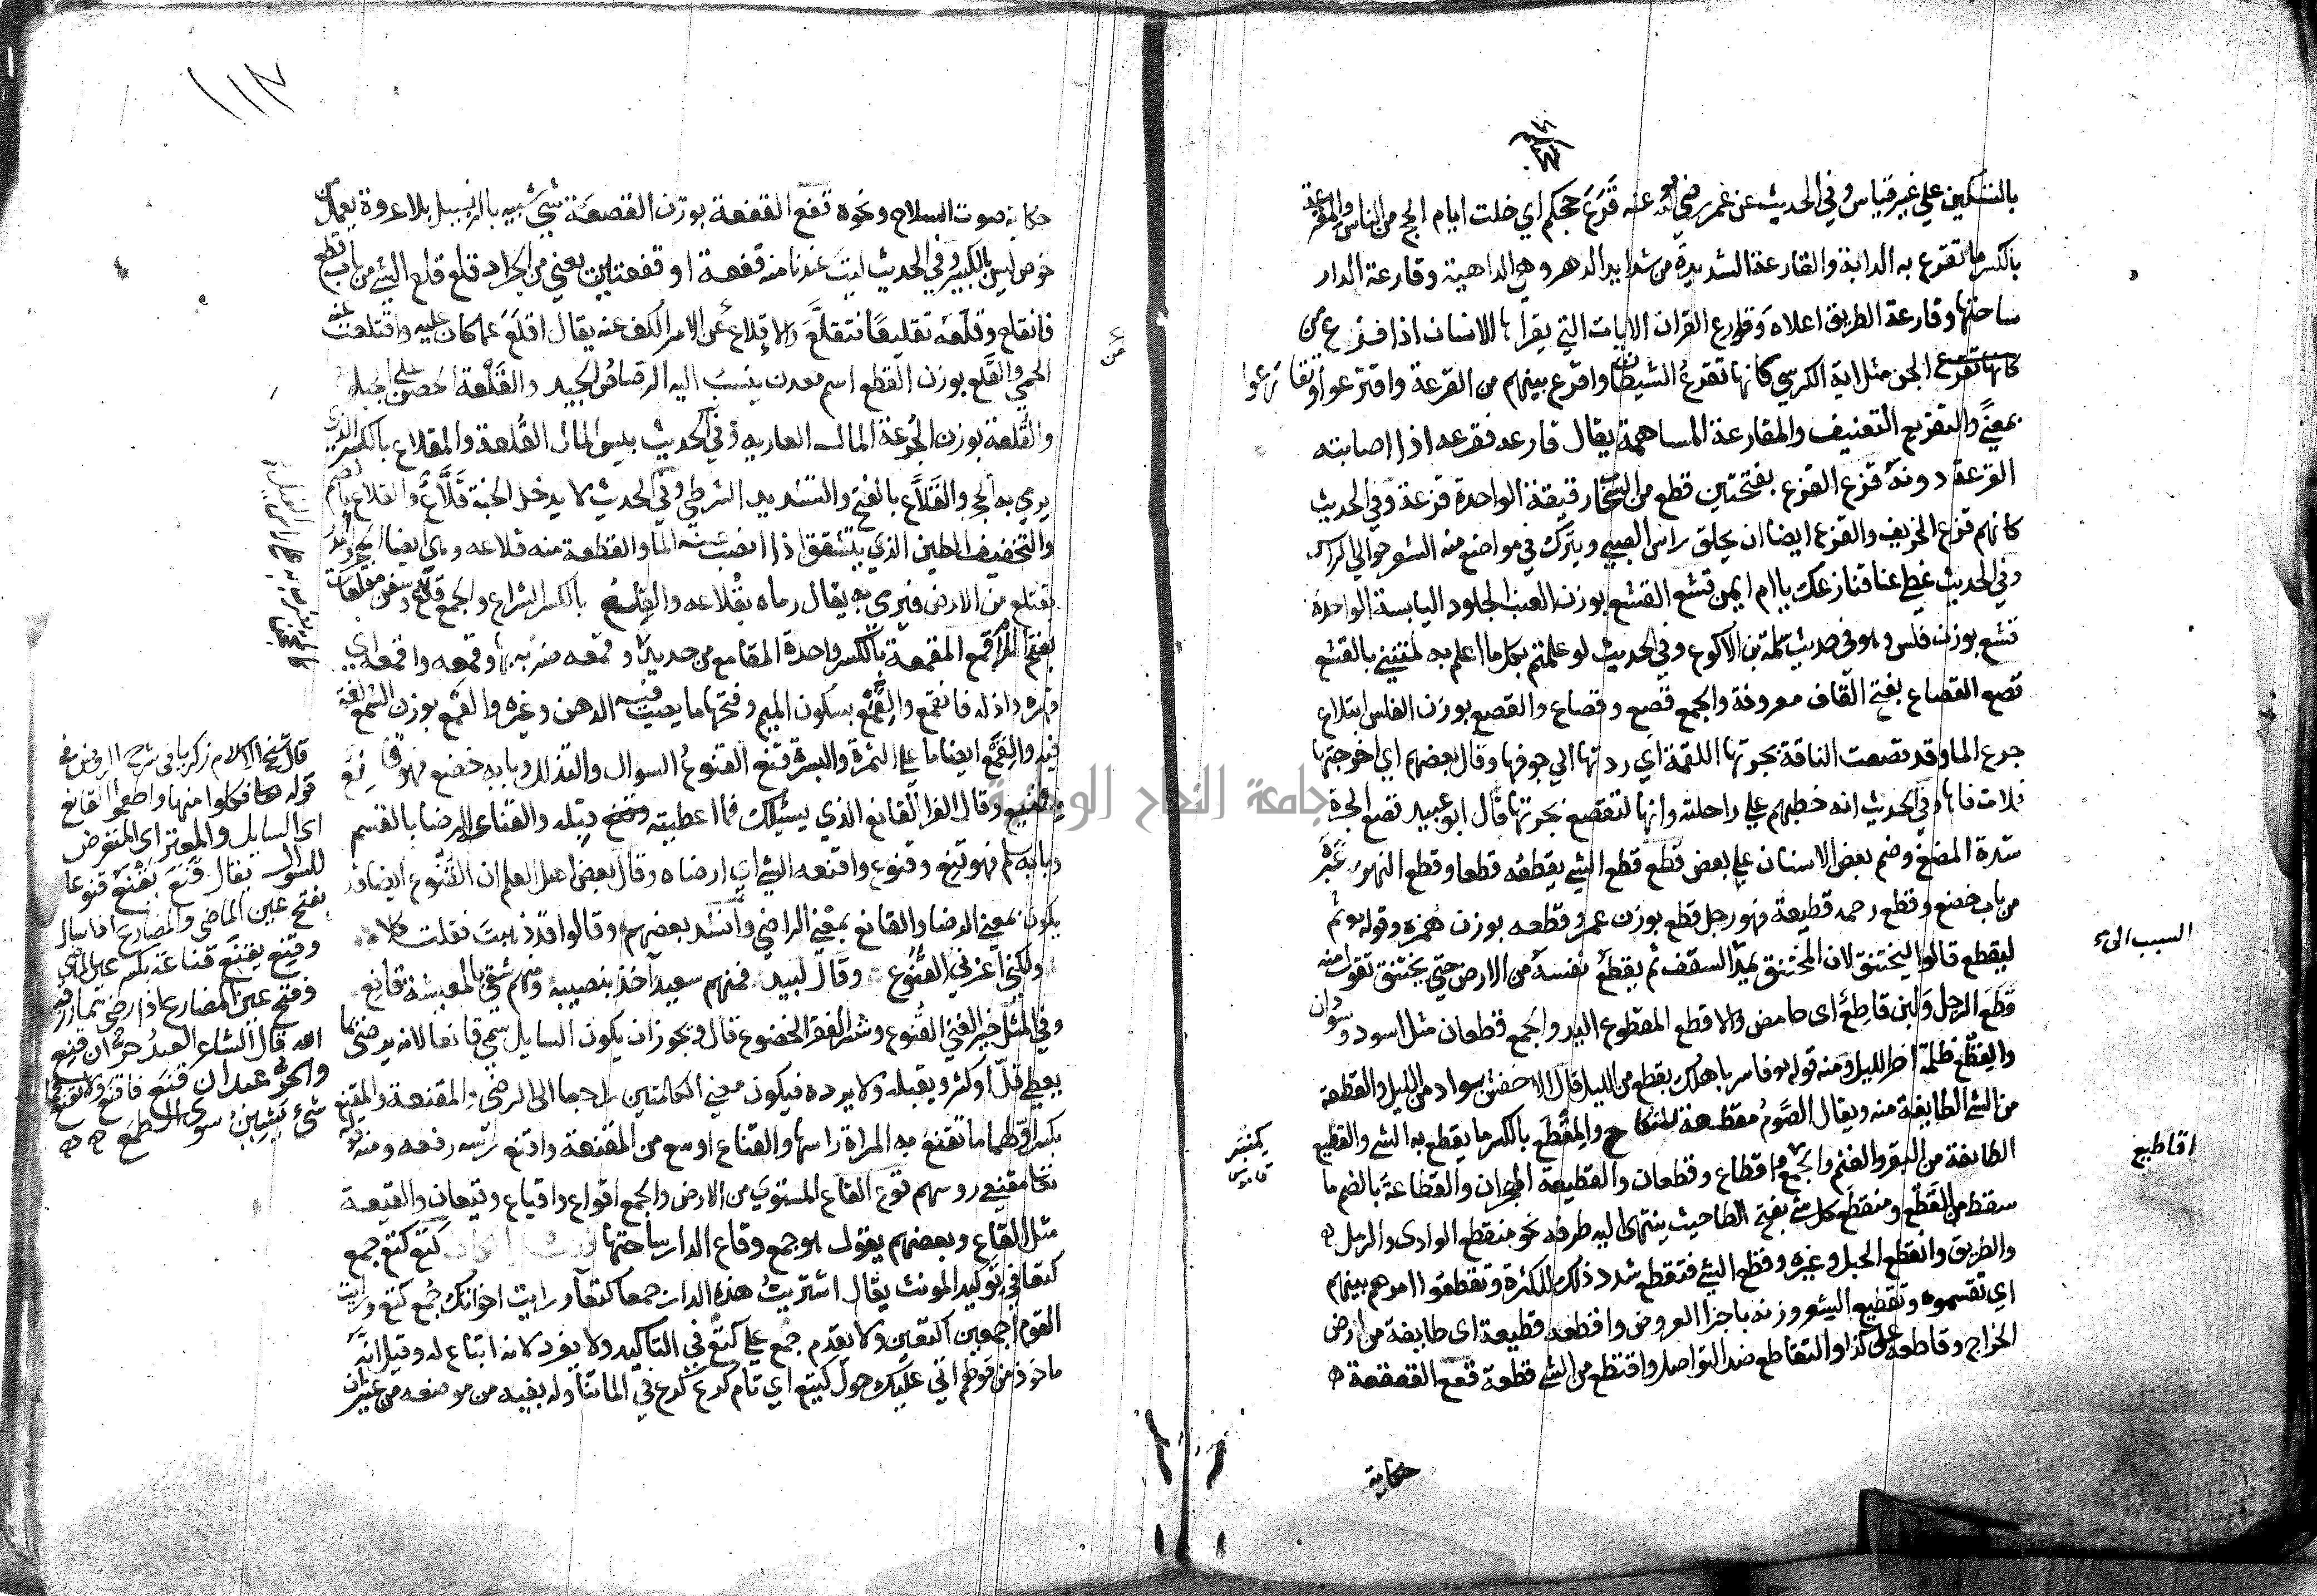 بالتسكين علي غير قياس وفي الحديث عن عمر رضي الله عنه قرع حجكم اي خلت ايام الحج من الناس والمقرعة
بالكسر ما تقرع به الدابة والقارعة الشديدة من شدايد الدهر وهي الداهية وقارعة الدار
ساحتها وقارعة الطريق اعلاه وقوارع القران الايات التي يقرأها الانسان اذا فزع من
الجن مثل اية الكرسي كانها تقرع الشيطان واقرع بينهم من القرعة واقترعوا وتقارعوا
بمعنًي والتقريع التعنيف والمقارعة المساهمة يقال قارعه فقرعه اذا اصابته
القرعة دونه قزع القزع بفتحتين قطع من السحاب رقيقة الواحدة قزعة وفي الحديث
كانهم قزع الخريف والقزع ايضا ان يحلق راس الصبي ويترك في مواضع منه الشعر
وفي الحديث غطي عنا قنازعك يا ام ايمن قشع القشع بوزن العنب الجلود اليابسة الواحدة
قشع بوزن فلس وهو في حديث سلمة بن الاكوع وفي الحديث لو علمتم بكل ما اعلم به لمتيني بالقشع
قصع القصاع بفتح القاف معروفة والجمع قصع وقصاع والقصع بوزن الفلس ابتلاع
جرع الما وقد قصعت الناقة بجرتها اللقمة اي ردتها الي جوفها وقال بعضهم اي اخرجتها
فلات فاها وفي الحديث انه خطبهم علي راحلته وانها لتقصع بجرتها قال ابو عبيد قصع الجرة
شدة المضغ وضم بعض الاسنان علي بعض قطع قطع الشي يقطعه قطعا وقطع النهر عبره
من باب خضع وقطع رحمه قطيعة فهو رجل قطع بوزن عمر وقطعه بوزن همزة وقوله تع ثم
ليقطع قالوا ليختنق لان المختنق يمد السقف ثم يقطع نفسه من الارض حتي يختنق تقول منه
قطع الرجل ولبن قاطع اى حامض والاقطع المقطوع اليد والجمع قطعان مثل اسود وسودان
والقطع ظلمة اخر الليل ومنه قوله تع فاسر باهلك بقطع من الليل قال الاخفش بسواد من الليل والقطعة
من الشي الطايفة منه ويقال الصوم مقطعة للنكاح والمقطع بالكسر ما يقطع به الشي والقطيع
الطايفة من البقر والغنم والجمع اقطاع وقطعان والقطيعة الهجران والقطاعة بالضم ما
سقط من القطع ومنقطع كل شي بفتح الطا حيث ينتهي اليه طرفه نحو منقطع الوادى والرمل
والطريق وانقطع الحبل وغيره وقطع الشي فتقطع شدد ذلك للكثرة وتقطعوا امرهم بينهم
اي تقسموه وتقطيع الشعر وزنه باجزا العروض واقطعه قطيعة اى طايفة من ارض
الخراج وقاطعه على كذا والتقاطع ضد التواصل واقتطع من الشي قطعة قعع القعقعة
حكاية
السبب الى
اقاطيع
كمنبر
قاموس
١١٣
حكاية صوت السلاح ونحوه قفع القفعة بوزن القصعة شي شبيه بالزنبيل بلا عروة يعمل من
خوص ليس بالكبير وفي الحديث ليت عندنا منه قفعة او قفعتين يعني من الجراد قلع قلع الشي من باب قطع
فانقلع وقلعه تقليعًا فتقلع والاقلاع عن الامر الكف عنه يقال اقلع عما كان عليه واقلعت عنه
الحمي والقلع بوزن القطع اسم معدن ينسب اليه الرصاص الجيد والقلعة الحصن على الجبل
والقلعة بوزن الجرعة المال العارية وفي الحديث بيس المال القلعة والمقلاع بالكسر الذي
يرمي به الحجر والقلاع بالفتح والتشديد الشرطي وفي الحديث لا يدخل الجنة قلاع والقلاع بالضم
والتخفيف الطين الذي يتشقق اذا نضب عنه الما والقطعة منه قلاعه وهي ايضا الحجر والمدر
يقتلع من الارض فيرمي به يقال رماه بقلاعه والقلع بالكسر الشراع والجمع قلاع وسفن مقلعات
بفتح اللام قمع المقمعة بالكسر واحدة المقامع من حديد وقمعه ضربه بها وقمعه واقمعه اي
قهره واذله فانقمع والقمع بسكون الميم وفتحها ما يصب فيه الدهن وغيره والقمع بوزن السمع لغة
فيه والقمع ايضا ما علي الثمرة والبسرة قنع القنوع السوال والتذلل وبابه خضع فهو قانع
وقنيع وقال الفرا القانع الذي يسيلك فما اعطيته قبله والقناعة الرضا بالقسم
وبابه سلم فهو قنع وقنوع واقنعه الشي اي ارضاه وقال بعض اهل العلم ان القنوع ايضا قد
يكون بمعني الرضا والقانع بمعني الراضي وانشد بعضهم وقالوا قد زهيت فقلت كلا
ولكني اعزني القنوع وقال لبيد فمنهم سعيد آخذ بنصيبه ومنهم شقي بالمعيشة قانع
وفي المثل خير الغني القنوع وشر الفقر الخضوع قال ويجوز ان يكون السايل سمي قانعا لانه يرضى بما
يعطي قل او كثر ويقبله ولا يرده فيكون معني الكلمتين راجعا الى الرضي والمقنعة والمقنع
بكسر اولهما ما تقنع به المراة راسها والقناع اوسع من المقنعة واقنع راسه رفعه ومنه قوله
تعا مقنعي روسهم قوع القاع المستوي من الارض والجمع اقواع واقياع وقيعان والقيعة
مثل القاع وبعضهم يقول هو جمع وقاع الدار ساحتها كتع كتع جمع
كتعا في توكيد المونث يقال اشتريت هذه الدار جمعا كتعا ورايت اخوانك جمع كتع ورايت
القوم اجمعين اكتعين ولا يقدم جمع علي كتع في التاكيد ولا يفرد لانه اتباع له وقيل انه
ماخوذ من قولهم اتي عليك حول كتيع اي تام كرع كرع في الما تناوله بفيه من موضعه من غير ان
قال شيخ الاسلام زكريا في شرح الروض في
قوله تعا فكلوا منها واطعموا القانع
اي السايل والمعتر اى المتعرض
للسوال يقال قنع يقنع قنوعا
بفتح عين الماضي والمضارع اذا سال
وقنع يقنع قناعة بكسر عين الماضي
وفتح عين المضارع اذا رضى بما رزقه
الله قال الشاعر العبد حر ان قنع
والحر عبد ان قنع فاقنع ولا تقنع فما
شئ يشين سوى الطمع
جامعة النجاح الو